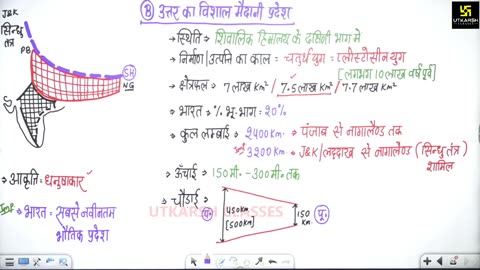 J&K
सिन्धु तंत्र
PB
SH
NG
Ⓑ उत्तर का विशाल मैदानी प्रदेश
→ स्थिति → शिवालिक हिमालय के दक्षिणी भाग में
→ निर्माण/उत्पत्ति का काल = चतुर्थ युग = प्लीस्टोसीन युग
[लगभग 10 लाख वर्ष पूर्व]
→ क्षेत्रफल → 7 लाख Km² / 7.5 लाख Km² / 7.7 लाख Km²
→ भारत → % भू-भाग = 20%
→ कुल लम्बाई → 2400 Km. → पंजाब से नागालैण्ड तक
3200 Km. → J&K/लद्दाख से नागालैण्ड (सिन्धु तंत्र शामिल)
→ ऊँचाई → 150 मी. - 300 मी. तक
→ चौड़ाई →
प॰
450 Km
[500 Km]
150 Km.
पू॰
→ आकृति = धनुषाकार
→ भारत = सबसे नवीनतम भौतिक प्रदेश
UTKARSH CLASSES
UTKARSH